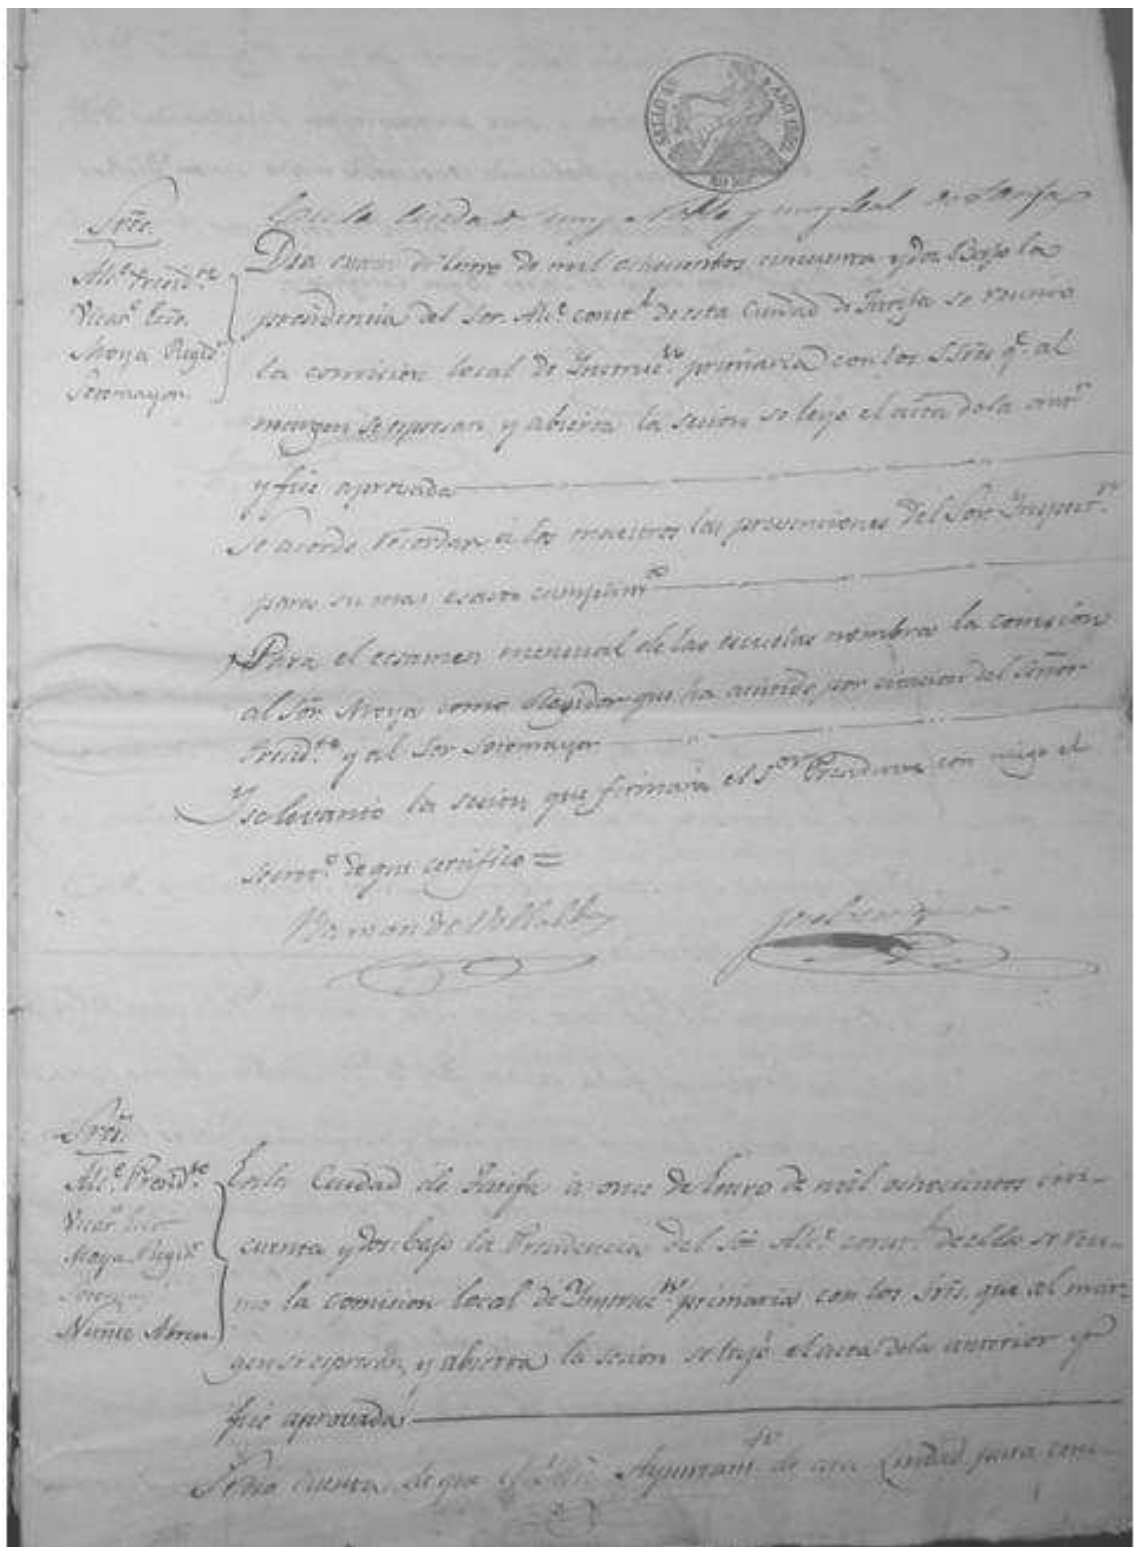 SELLO 4º AÑO 1852
En la Ciudad muy Noble y muy Leal de Tarifa
Sres.
Alc.e Presid.te
Vicar.º Ecco.
Moya Regid.r
Sotomayor
Dia de Enero de mil ochocientos cincuenta y dos Bajo la
presidencia del Sor. Alc.e const.l de esta Ciudad de Tarifa se reunio
la comision local de Instruc.n primaria con los SSres q.e al
margen se espresan y abierta la sesion se leyo el acta de la ant.r
y fue aprovada
Se acordo recordar a los maestros las prevenciones del Sor. Inspect.r
para su mas esacto cumplim.to
Para el esamen mensual de las escuelas nombra la comision
al Sor. Moya como Regidor que ha asistido por citacion del Señor
Presid.te y al Sor Sotomayor
Y se levanto la sesion que firmará el S.or Presidente con migo el
Secret.º de que certifico =
Ramon de
Jose
Sres.
Alc.e Presid.te
Vicar.º Ecco
Moya Regid.r
Nuñez Abreu
En la Ciudad de Tarifa a once de Enero de mil ochocientos cin-
cuenta y dos bajo la Presidencia del Sor Alc.e const.l de ella se reu-
nio la comision local de Instruc.n primaria con los Sres. que al mar-
gen se espresan, y abierta la sesion se leyó el acta de la anterior q.e
fue aprovada
Se dio cuenta de que el Ayuntam.to de esta Ciudad